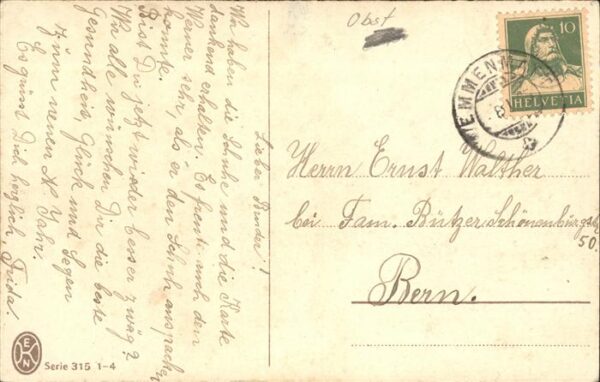 Obst
10
HELVETIA
Lieber Bruder!
Wir haben die Schuhe und die Karte
dankend erhalten. Es freute mich dem
Werner sehr, als er den Schuh auspacken
konnte.
Bist Du jetzt wieder besser zwäg?
Wir alle wünschen Dir die beste
Gesundheit, Glück und Segen
zum neuen N. Jahr.
Es grüsst Dich herzlich, Frida.
Herrn Ernst Walther
bei Fam. Bützer, Schönenburgstr.
50.
Bern.
EKN
Serie 315 1-4